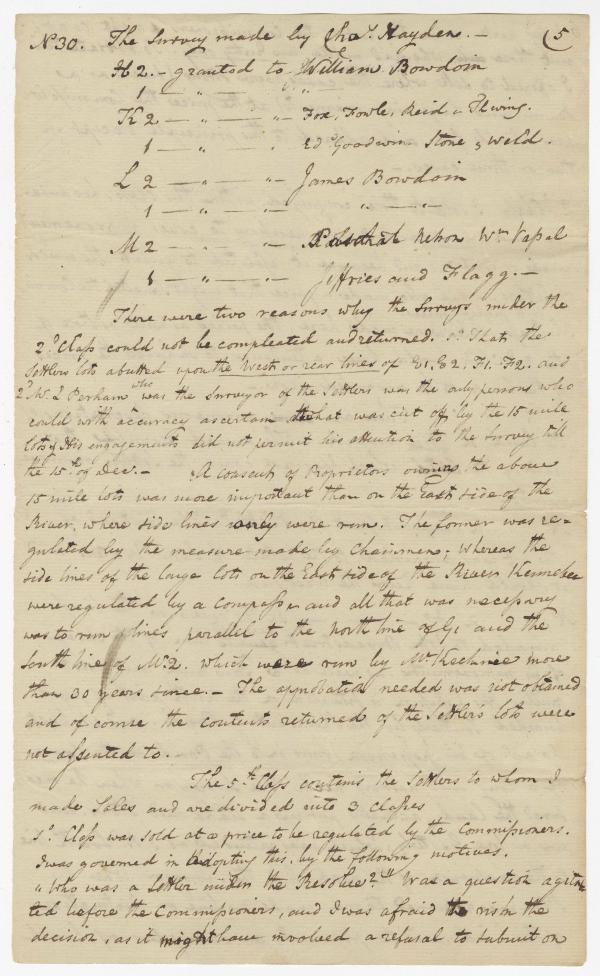 No 30. The Survey made by Chas. Hayden.— 5
H 2.— granted to William Bowdoin
1 — " — " — " "
K 2 — " — "— Fox, Fowle, Reid & Flwing.
1 — " — " Ed Goodwin Stone & Weld.
L 2 — " — "— James Bowdoin
1 — " — "— " — " —
M 2 — " — Nelson Wm Vassal
1 — " — "— Jeffries and Flagg.—
There were two reasons why the Surveys under the
2d. Class could not be compleated and returned. 1st. That the
Settlers lots abutted upon the West or rear lines of E1, E2, F1. F2. and
2d Mr. L Perham who was the Surveyor of the Settlers was the only persons who
could with accuracy ascertain what was cut off by the 15 mile
lots & His engagements did not permit his attention to the Survey till
the 15th. of Dec.— A consent of Proprietors owning the above
15 mile lots was more important than on the East side of the
River, where side lines only were run. The former was re-
gulated by the measure made by Chainmen; Whereas the
side lines of the large lots on the East side of the River Kennebec
were regulated by a compass, and all that was necessary
was to run lines parallel to the North line of G1 and the
South line of M. 2. which were run by Mr. Kechnie more
than 30 years since.— The approbation needed was not obtained
and of course the contents returned of the Settler's lots were
not assented to.
The 5th Class contains the Settlers to whom I
made Sales and are divided into 3 classes
1st. Class was sold at a price to be regulated by the Commissioners.
I was governed in adopting this, by the following motives.
"Who was a Settler under the Resolve?" Was a question agita-
ted before the Commissioners, and I was afraid to risk the
decision, as it might have involved a refusal to submit on